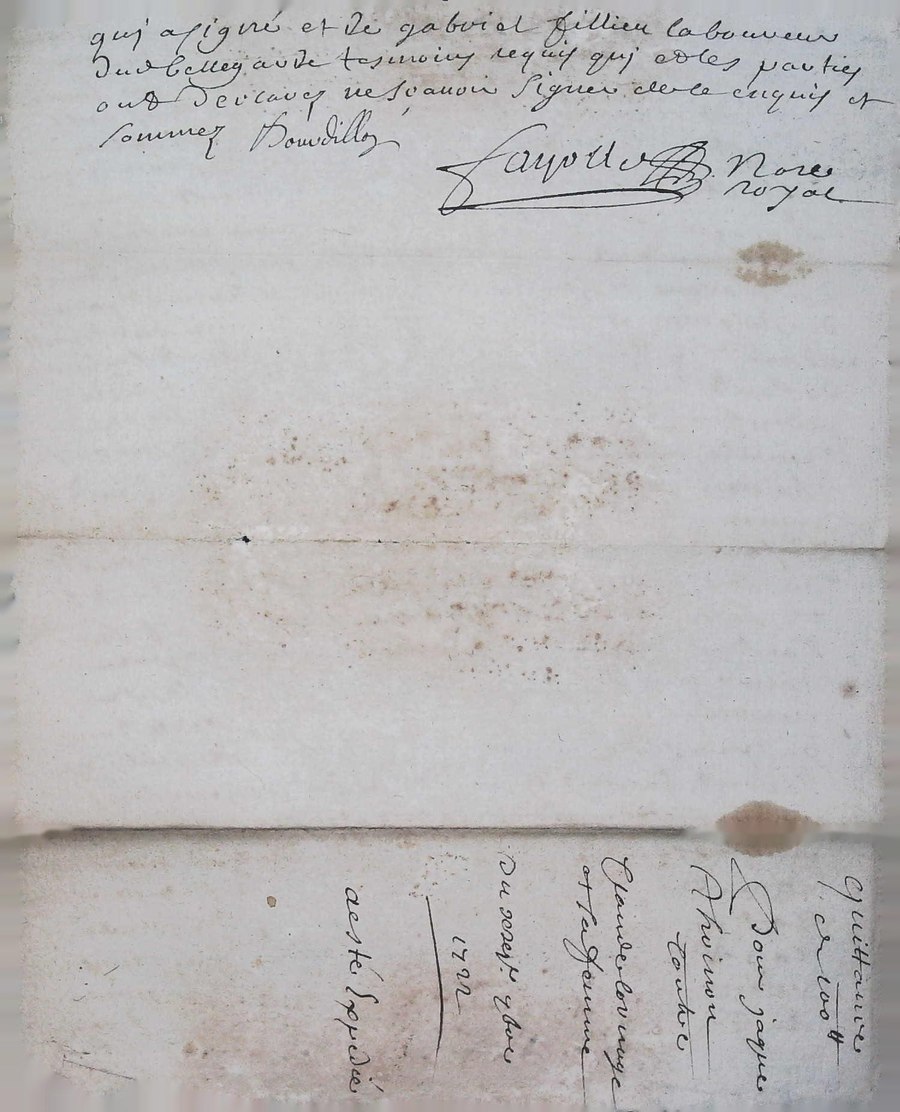 qui a signé et de gabriel fillieu laboureur
dud bellegarde tesmoins requis qui et les parties
ont declarez ne scavoir signer de ce enquis et
sommez Bourdillon
Fayolle Nore
royal
Quittance
de 100tt
Pour jaque
Thoinon
Contre
et sa femme
Du
1722
a esté Expedié